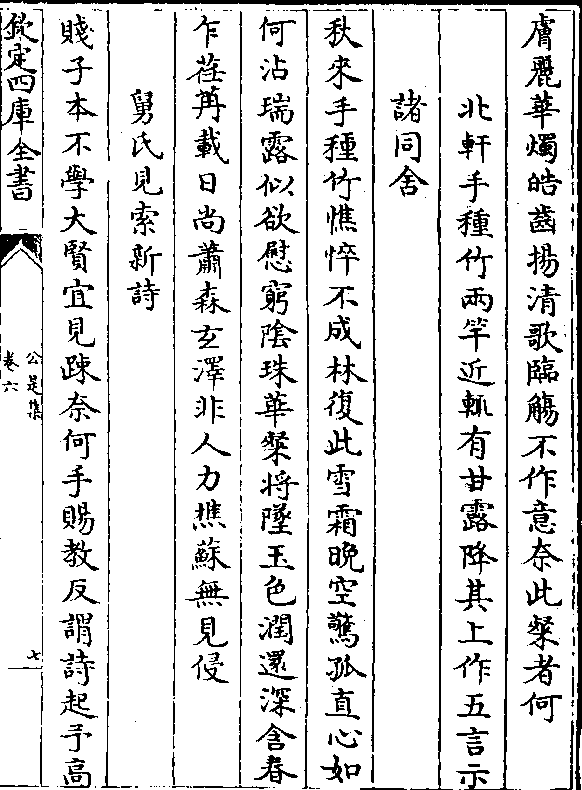 膚麗華燭皓齒揚清歌臨觴不作意奈此粲者何
北軒手種竹兩竿近輒有甘露降其上作五言示
諸同舍
秋來手種竹憔悴不成林復此雪霜晚空驚孤直心如
何沾瑞露似欲慰窮陰珠華粲將墜玉色潤還深含春
乍荏苒載日尚蕭森玄澤非人力樵蘇無見侵
舅氏見索新詩
賤子本不學大賢宜見疎奈何手賜教反謂詩起予高
欽定四庫全書
公是集
卷六
七